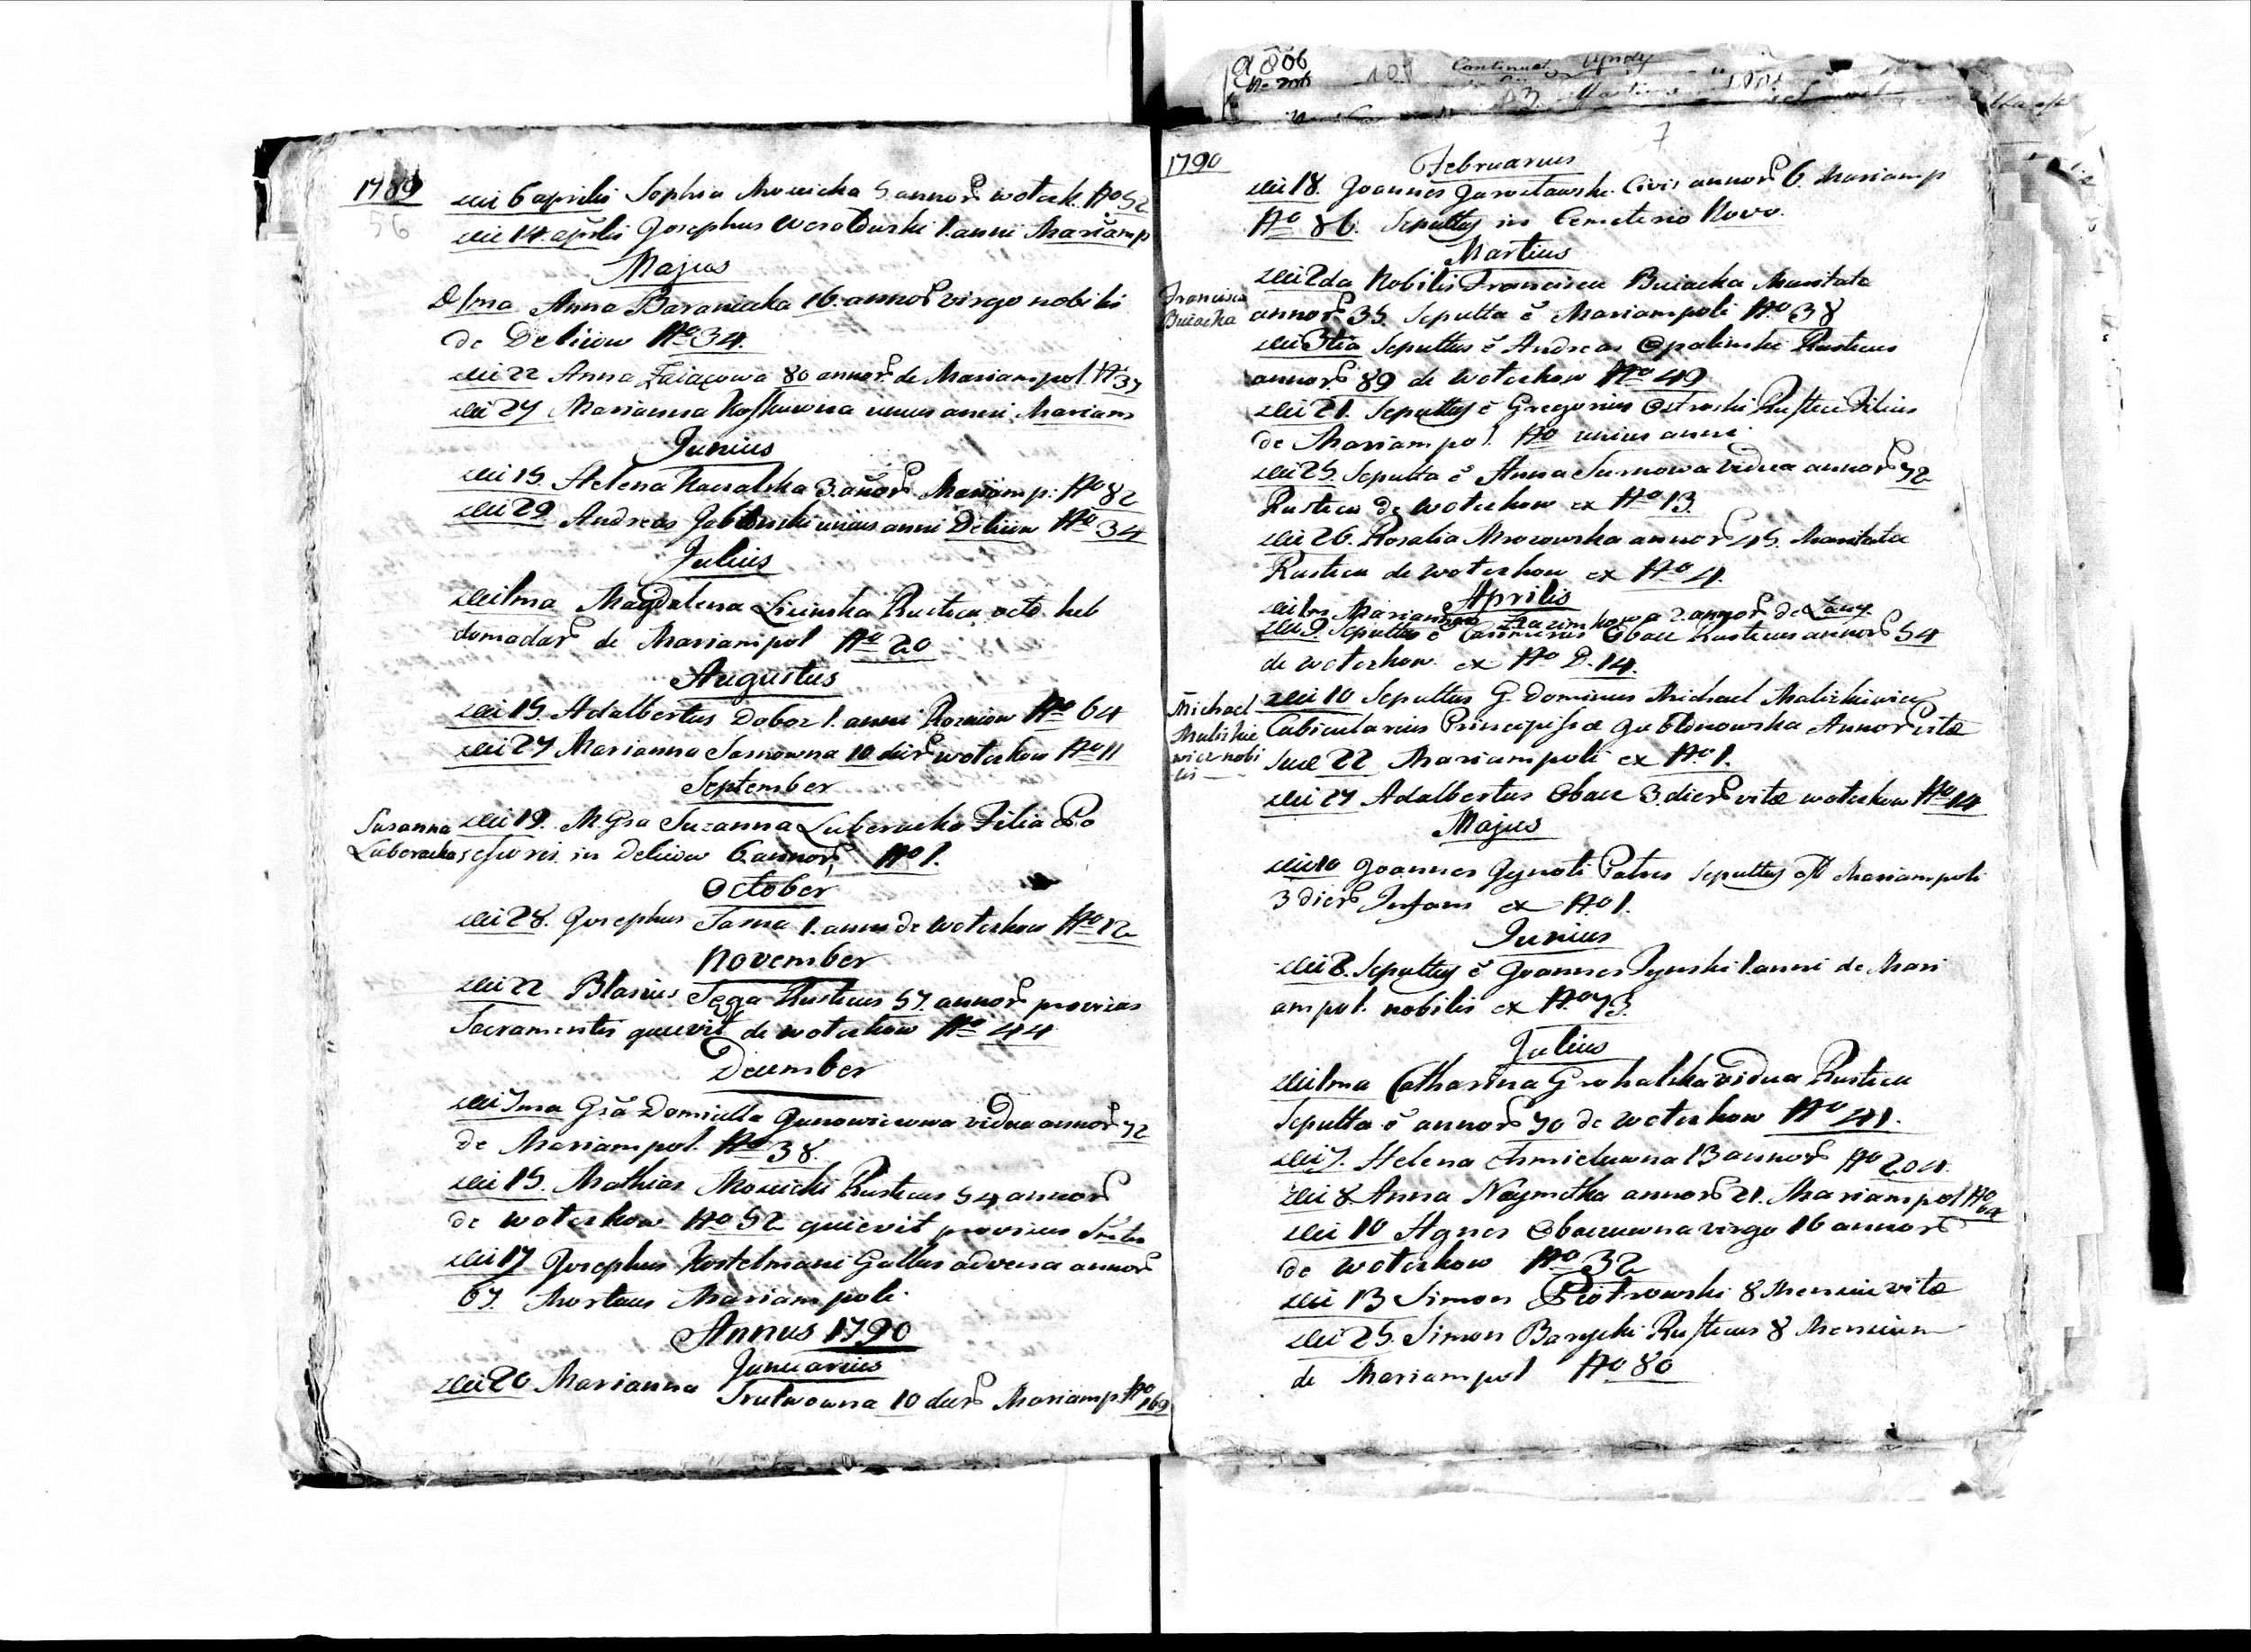 1789
56
die 6 aprilis Sophia Mowicka 5 annor. wotczk. No 52
die 14. aprilis Josephus 1. anni Mariamp
Majus
D 1ma Anna Baraniecka 16. annor virgo nobilis
de Deliiow No 34.
die 22 Anna Zaiącowa 80 annor. de Mariampol. N 37
die 27 Marianna unius anni Mariam
Junius
die 15. Helena Kowalska 3. anor. Mariamp. No 82
die 29 Andreas Jablonski unius anni Deliiow No 34
Julius
die 1ma Magdalena Licinska Rustica octo heb
domadar de Mariampol No 20
Augustus
die 15. Adalbertus Doboz 1. anni No 64
die 27 Marianna Sarnowna 10 dier wotczkow No 11
September
Susanna
Luberacka
die 19. M. Gsa Suzanna Luberacka Filia Po
sessoris in Deliiow 6 annor, No 1.
October
die 28. Josephus Sarna 1. anni de Wotczkow No 12
November
die 22 Blasius Sęga Rusticus 57. annor provisus
Sacramentis quievit de wotczkow No 44
December
die 7ma Gsa Domicella Janowiczowa vidua annor 72
de Mariampol. No 38.
die 15. Mathias Mowicki Rusticus 54 annor
de wotczkow No 52 quievit provisus Sntis
die 17 Josephus Kostelmani Gallus advena annor
67. Mortuus Mariampoli.
Annus 1790
Januarius
die 20 Marianna Trutwowna 10 dier Mariamp. No 169
a 806
109
7
1790
Februarius
die 18. Joannes Jaroslawski. Civis annor 6. Mariamp
No 86. Sepultus in Cemeterio Novo.
Martius
Francisca
Buiacka
die 2da Nobilis Francisca Buiacka Maritata
annor. 35. Sepulta ē Mariampoli No 38
die 3tia Sepultus ē Andreas Opalinski Rusticus
annor 89 de wotczkow No 49
die 21. Sepultus ē Gregorius Ostroski Rustici Filius
de Mariampol. No unius anni.
die 25. Sepulta ē Anna Surnowa vidua annor 72
Rustica de wotczkow ex No 13.
die 26. Rosalia Mrozowska annor 45. Maritata
Rustica de wotczkow ex No 4.
Aprilis
die 1ma Marianna 2. annor de Lany.
die 9. Sepultus ē Casimirus Obacz Rusticus annor 54
de wotczkow. ex No D. 14.
Michael
Maliszkie
wicz nobi
lis
die 10 Sepultus G. Dominus Michael Maliszkiewicz
Cubicularius Principissæ Jablonowska Annor vitæ
suæ 22 Mariampoli ex No 1.
die 27 Adalbertus Obacz 3. dier vitæ wotczkow No 14
Majus
die 10 Joannes Patris Sepultus est Mariampoli
3 dier Infans ex No 1.
Junius
die 8. Sepultus ē Joannes 1. anni de Mari
ampol. nobilis ex No 73.
Julius
die 1ma Catharina Grohalska vidua Rustica
Sepulta ē annor 70 de wotczkow No 41.
die 7. Helena Chmieluwna 13 annor No 204.
die 8. Anna Naymitka annor 21. Mariampol No 64
die 10 Agnes Obaczuwna virgo 16 annor
de wotczkow No 32
die 13 Simon Piotrowski 8 Mensium vitæ
die 25. Simon Barycki Rusticus 8 Mensium
de Mariampol No 80